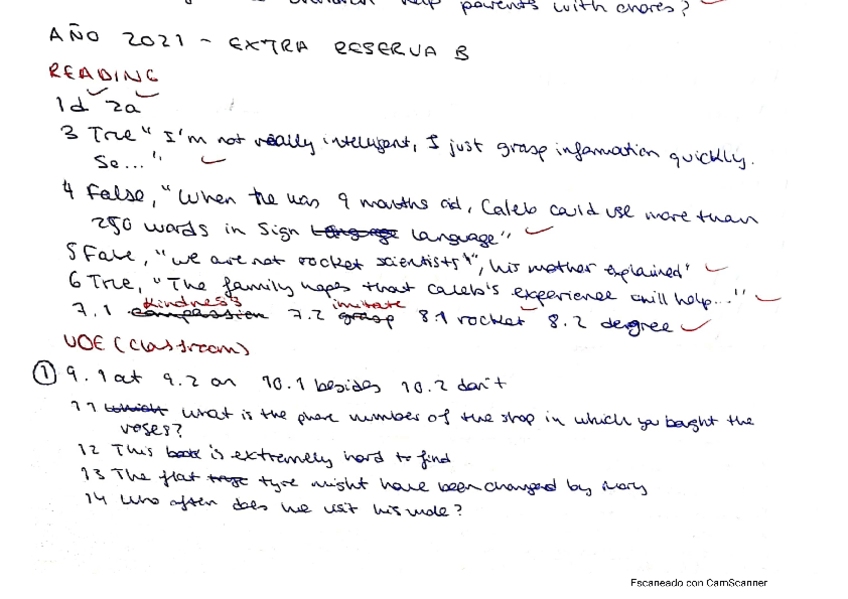 children help parents with chores?
AÑO 2021 - EXTRA RESERVA B
READING
1d 2a
3 True "I'm not really intelligent, I just grasp information quickly.
So..."
4 False, "When he was 9 months old, Caleb could use more than
250 words in Sign language"
5 False, "we are not rocket scientists", his mother explained"
6 True, "The family hopes that Caleb's experience will help..."
kindness imitate
7.1 compassion 7.2 grasp 8.1 rocket 8.2 degree
UOE (Classroom)
1 9.1 at 9.2 on 10.1 besides 10.2 don't
11 which what is the phone number of the shop in which you bought the
roses?
12 This book is extremely hard to find
13 The flat tyre might have been changed by Mary
14 Who often does he visit his uncle?
Escaneado con CamScanner